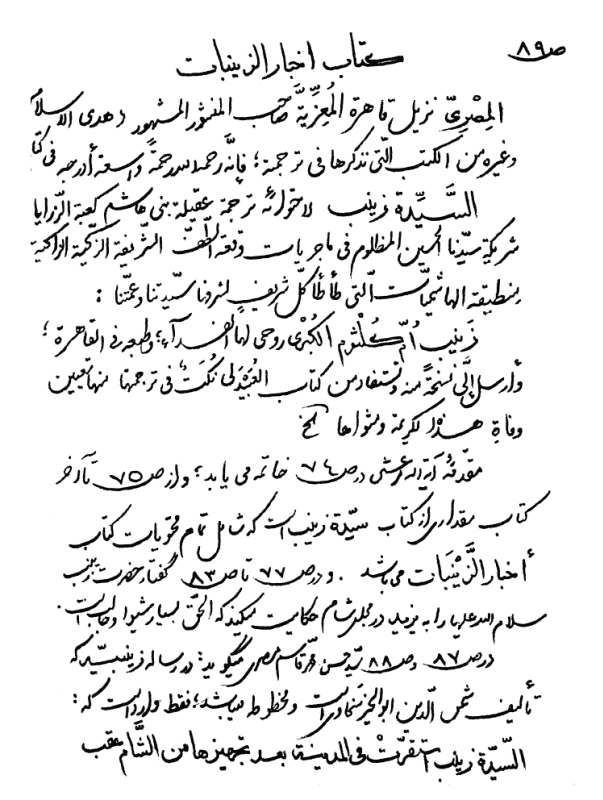 ص ٨٩
كتاب اخبار الزينبات
المِصْريّ نزيل قاهرة المُعِزِّيَّة صاحب المنثور المشهور (هدى الاسلام
وغيره من الكتب الّتي نذكرها في ترجمة؛ فإنّه رحمه الله رحمة واسعة أدرجه في كتا
السَّيِّدة زينب لاحتوائه ترجمة عقيلة بني هاشم كعبة الرّزايا
شريكة سيّدنا الحسين المظلوم في ماجريات وقعة الطّفّ الشّريفة الزّكيّة الزاكية
منطيقة الهاشميّات الّتي طأطأ كلّ شريف لشرفها سيّدتنا وعمّتنا :
زينب اُمّ كُلْثوم الكُبْرى روحي لها الفدآء؛ وطبعه في القاهرة؛
وأرسل إليَّ نسخةً منه ونستفاد من كتاب العُبَيْدَلي نُكَتٌ في ترجمتها منها تعيين
وفاة هذه الكريمة ومثواها الخ
مقدّمهٔ آية الله مرعشى در ص ٧٤ خاتمه مى يابد؛ و از ص ٧٥ تا آخر
كتاب مقدارى از كتاب سيّدة زينب است كه شامل تمام محتويات كتاب
أخبار الزَّيْنَبات مى باشد. و در ص ٧٧ تا ص ٨٣ گفتار حضرت زينب
سلام الله عليها را به يزيد در مجلس شام حكايت ميكند كه الحقّ بسيار شيوا و جالب است.
در ص ٨٧ و ص ٨٨ سيّد حسن محمّد قاسم مصرى ميگويد: در رساله زينبيّه كه
تأليف شمس الدّين ابوالخير سخاوى است و مخطوط ميباشد؛ فقط وارد است كه:
السّيّدة زينب استقرّتْ في المدينة بعد تجهيزها من الشّام عقب